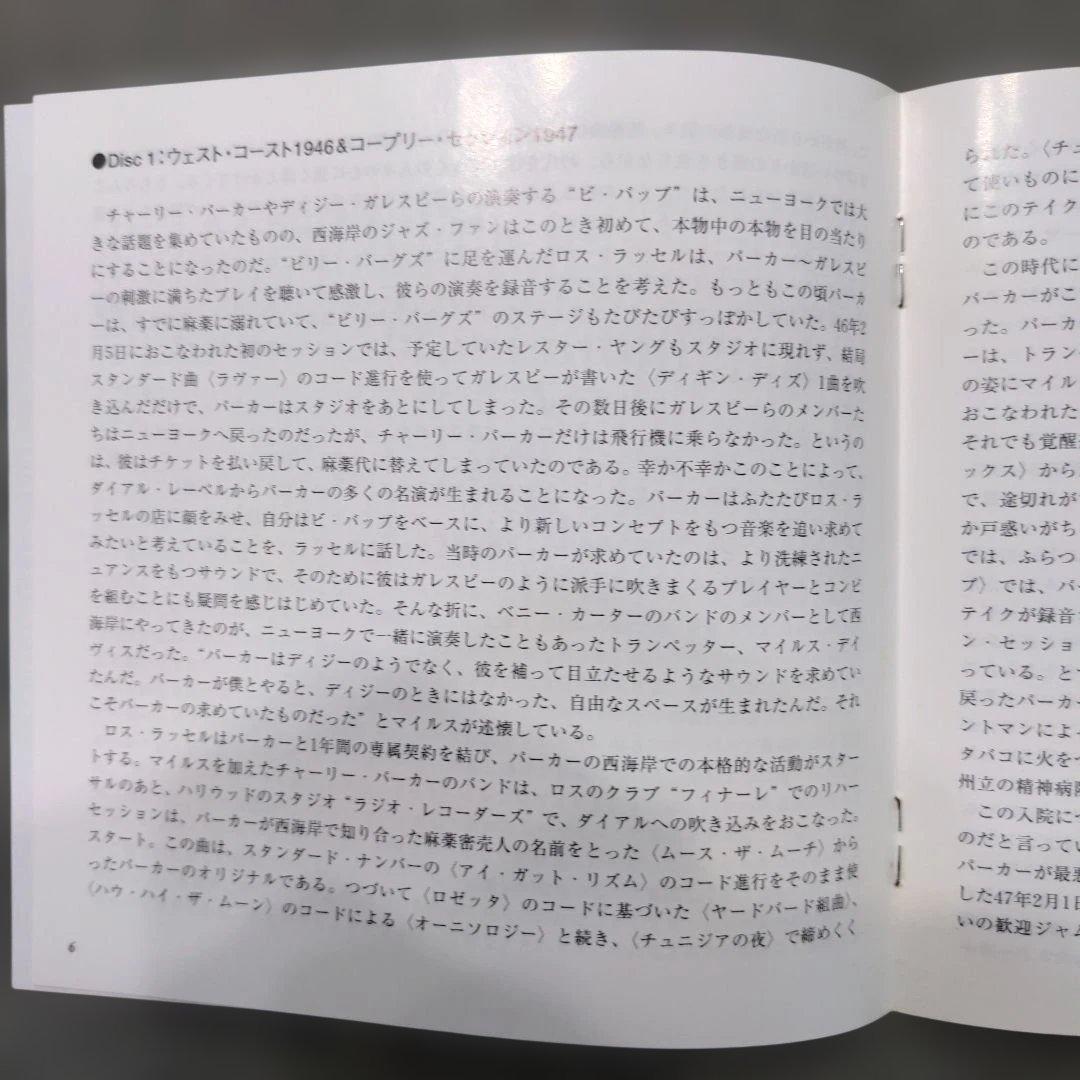 ●Disc 1：ウェスト・コースト1946＆コープリー・セッション1947
チャーリー・パーカーやディジー・ガレスピーらの演奏する“ビ・バップ”は、ニューヨークでは大
きな話題を集めていたものの、西海岸のジャズ・ファンはこのとき初めて、本物中の本物を目の当たり
にすることになったのだ。“ビリー・バーグズ”に足を運んだロス・ラッセルは、パーカー〜ガレスピ
ーの刺激に満ちたプレイを聴いて感激し、彼らの演奏を録音することを考えた。もっともこの頃パーカ
ーは、すでに麻薬に溺れていて、“ビリー・バーグズ”のステージもたびたびすっぽかしていた。46年2
月5日におこなわれた初のセッションでは、予定していたレスター・ヤングもスタジオに現れず、結局
スタンダード曲〈ラヴァー〉のコード進行を使ってガレスピーが書いた〈ディギン・ディズ〉1曲を吹
き込んだだけで、パーカーはスタジオをあとにしてしまった。その数日後にガレスピーらのメンバーた
ちはニューヨークへ戻ったのだったが、チャーリー・パーカーだけは飛行機に乗らなかった。というの
は、彼はチケットを払い戻して、麻薬代に替えてしまっていたのである。幸か不幸かこのことによって、
ダイアル・レーベルからパーカーの多くの名演が生まれることになった。パーカーはふたたびロス・ラ
ッセルの店に顔をみせ、自分はビ・バップをベースに、より新しいコンセプトをもつ音楽を追い求めて
みたいと考えていることを、ラッセルに話した。当時のパーカーが求めていたのは、より洗練されたニ
ュアンスをもつサウンドで、そのために彼はガレスピーのように派手に吹きまくるプレイヤーとコンビ
を組むことにも疑問を感じはじめていた。そんな折に、ベニー・カーターのバンドのメンバーとして西
海岸にやってきたのが、ニューヨークで一緒に演奏したこともあったトランペッター、マイルス・デイ
ヴィスだった。“パーカーはディジーのようでなく、彼を補って目立たせるようなサウンドを求めてい
たんだ。パーカーが僕とやると、ディジーのときにはなかった、自由なスペースが生まれたんだ。それ
こそパーカーの求めていたものだった”とマイルスが述懐している。
ロス・ラッセルはパーカーと1年間の専属契約を結び、パーカーの西海岸での本格的な活動がスター
トする。マイルスを加えたチャーリー・パーカーのバンドは、ロスのクラブ“フィナーレ”でのリハー
サルのあと、ハリウッドのスタジオ“ラジオ・レコーダーズ”で、ダイアルへの吹き込みをおこなった。
セッションは、パーカーが西海岸で知り合った麻薬密売人の名前をとった〈ムース・ザ・ムーチ〉から
スタート。この曲は、スタンダード・ナンバーの〈アイ・ガット・リズム〉のコード進行をそのまま使
ったパーカーのオリジナルである。つづいて〈ロゼッタ〉のコードに基づいた〈ヤードバード組曲〉、
〈ハウ・ハイ・ザ・ムーン〉のコードによる〈オーニソロジー〉と続き、〈チュニジアの夜〉で締めくく
6
られた。〈チュニ
て使いものに
にこのテイク
のである。
この時代に
パーカーがこ
った。パーカ
ーは、トラン
の姿にマイル
おこなわれた
それでも覚醒
ックス〉から
で、途切れが
か戸惑いがち
では、ふらつ
ブ〉では、パ
テイクが録音
ン・セッショ
っている。とう
戻ったパーカー
ントマンによ
タバコに火をつ
州立の精神病院
この入院につ
のだと言ってい
パーカーが最悪
した47年2月1日
いの歓迎ジャム